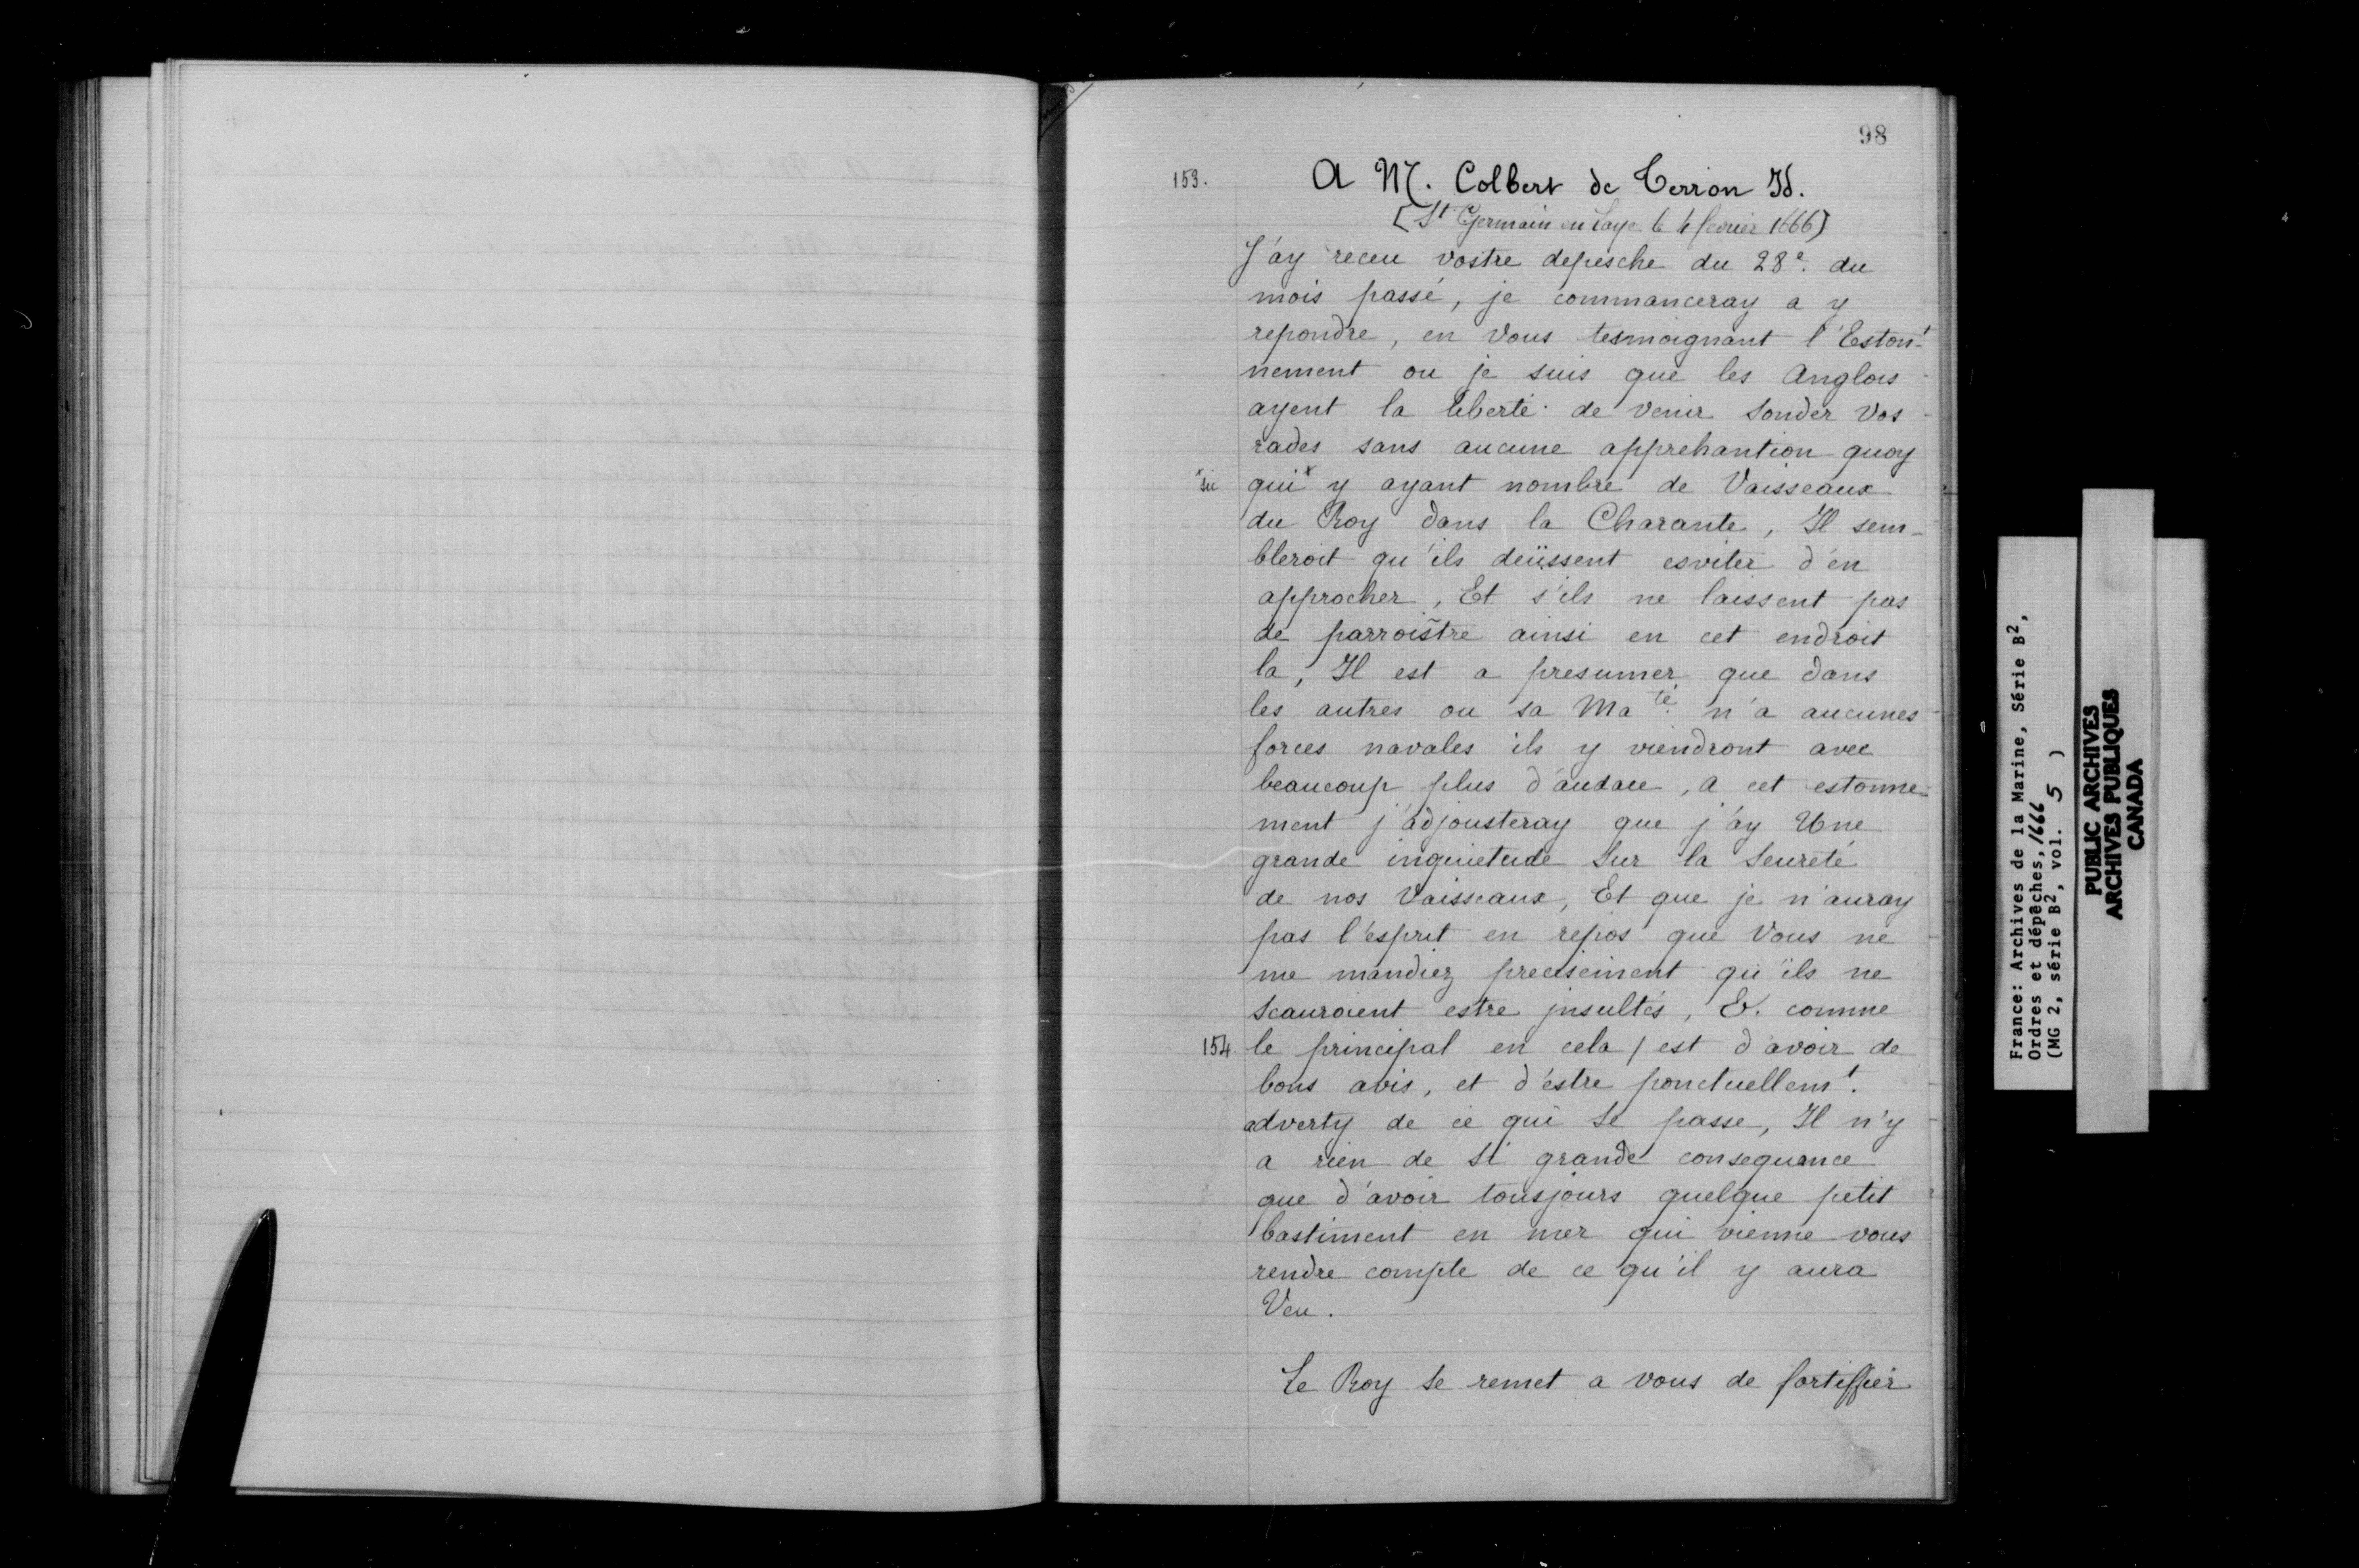 98
153. A M. Colbert de Terron Id.
[St Germain en Laye le 4 fevrier 1666]
J'ay receu vostre depesche du 28e. du
mois passé, je commanceray a y
repondre, en Vous tesmoignant l'Eston-
nement ou je suis que les Anglois
ayent la liberté de venir sonder vos
rades sans aucune apprehantion quoy
*su qui* y ayant nombre de Vaisseaux
du Roy dans la Charante, Il sem-
bleroit qu'ils deüssent esviter d'en
approcher, Et s'ils ne laissent pas
de parroistre ainsi en cet endroit
la, Il est a presumer que dans
les autres ou sa Ma té n'a aucunes
forces navales ils y viendront avec
beaucoup plus d'audace, a cet estonne-
ment j'adjousteray que j'ay Une
grande inquietude sur la seureté
de nos Vaisseaux, Et que je n'auray
pas l'esprit en repos que Vous ne
me mandiez precisement qu'ils ne
scauroient estre insultés, &. comme
154 le principal en cela / est d'avoir de
bons avis, et d'estre ponctuellemt.
adverty de ce qui se passe, Il n'y
a rien de si grande consequance
que d'avoir tousjours quelque petit
bastiment en mer qui vienne vous
rendre compte de ce qu'il y aura
Veu.
Le Roy se remet a vous de fortiffier
France: Archives de la Marine, Série B2,
Ordres et dépêches, 1666
(MG 2, série B2, vol. 5 )
PUBLIC ARCHIVES
ARCHIVES PUBLIQUES
CANADA